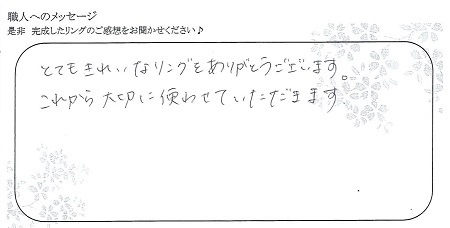 職人へのメッセージ
是非 完成したリングのご感想をお聞かせください♪
とてもきれいなリングをありがとうございます。
これから大切に使わせていただきます。